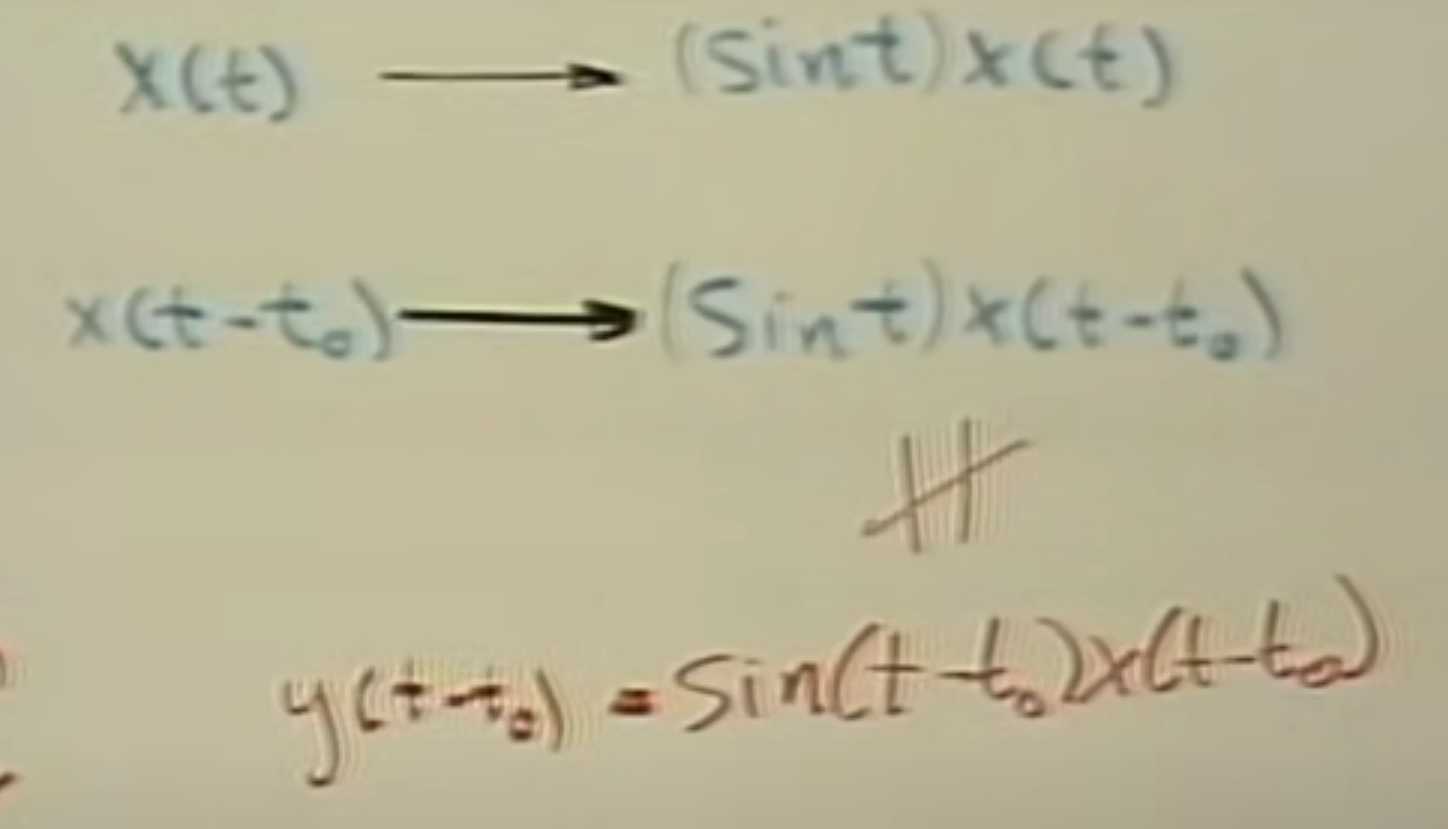 x(t) ⟶ (sin t) x(t)
x(t-t₀) ⟶ (sin t) x(t-t₀)
≠
y(t-t₀) = sin(t-t₀)x(t-t₀)